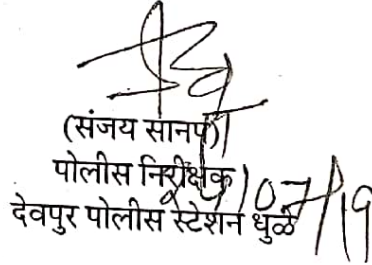 (संजय सानप)
पोलीस निरीक्षक
देवपुर पोलीस स्टेशन धुळे